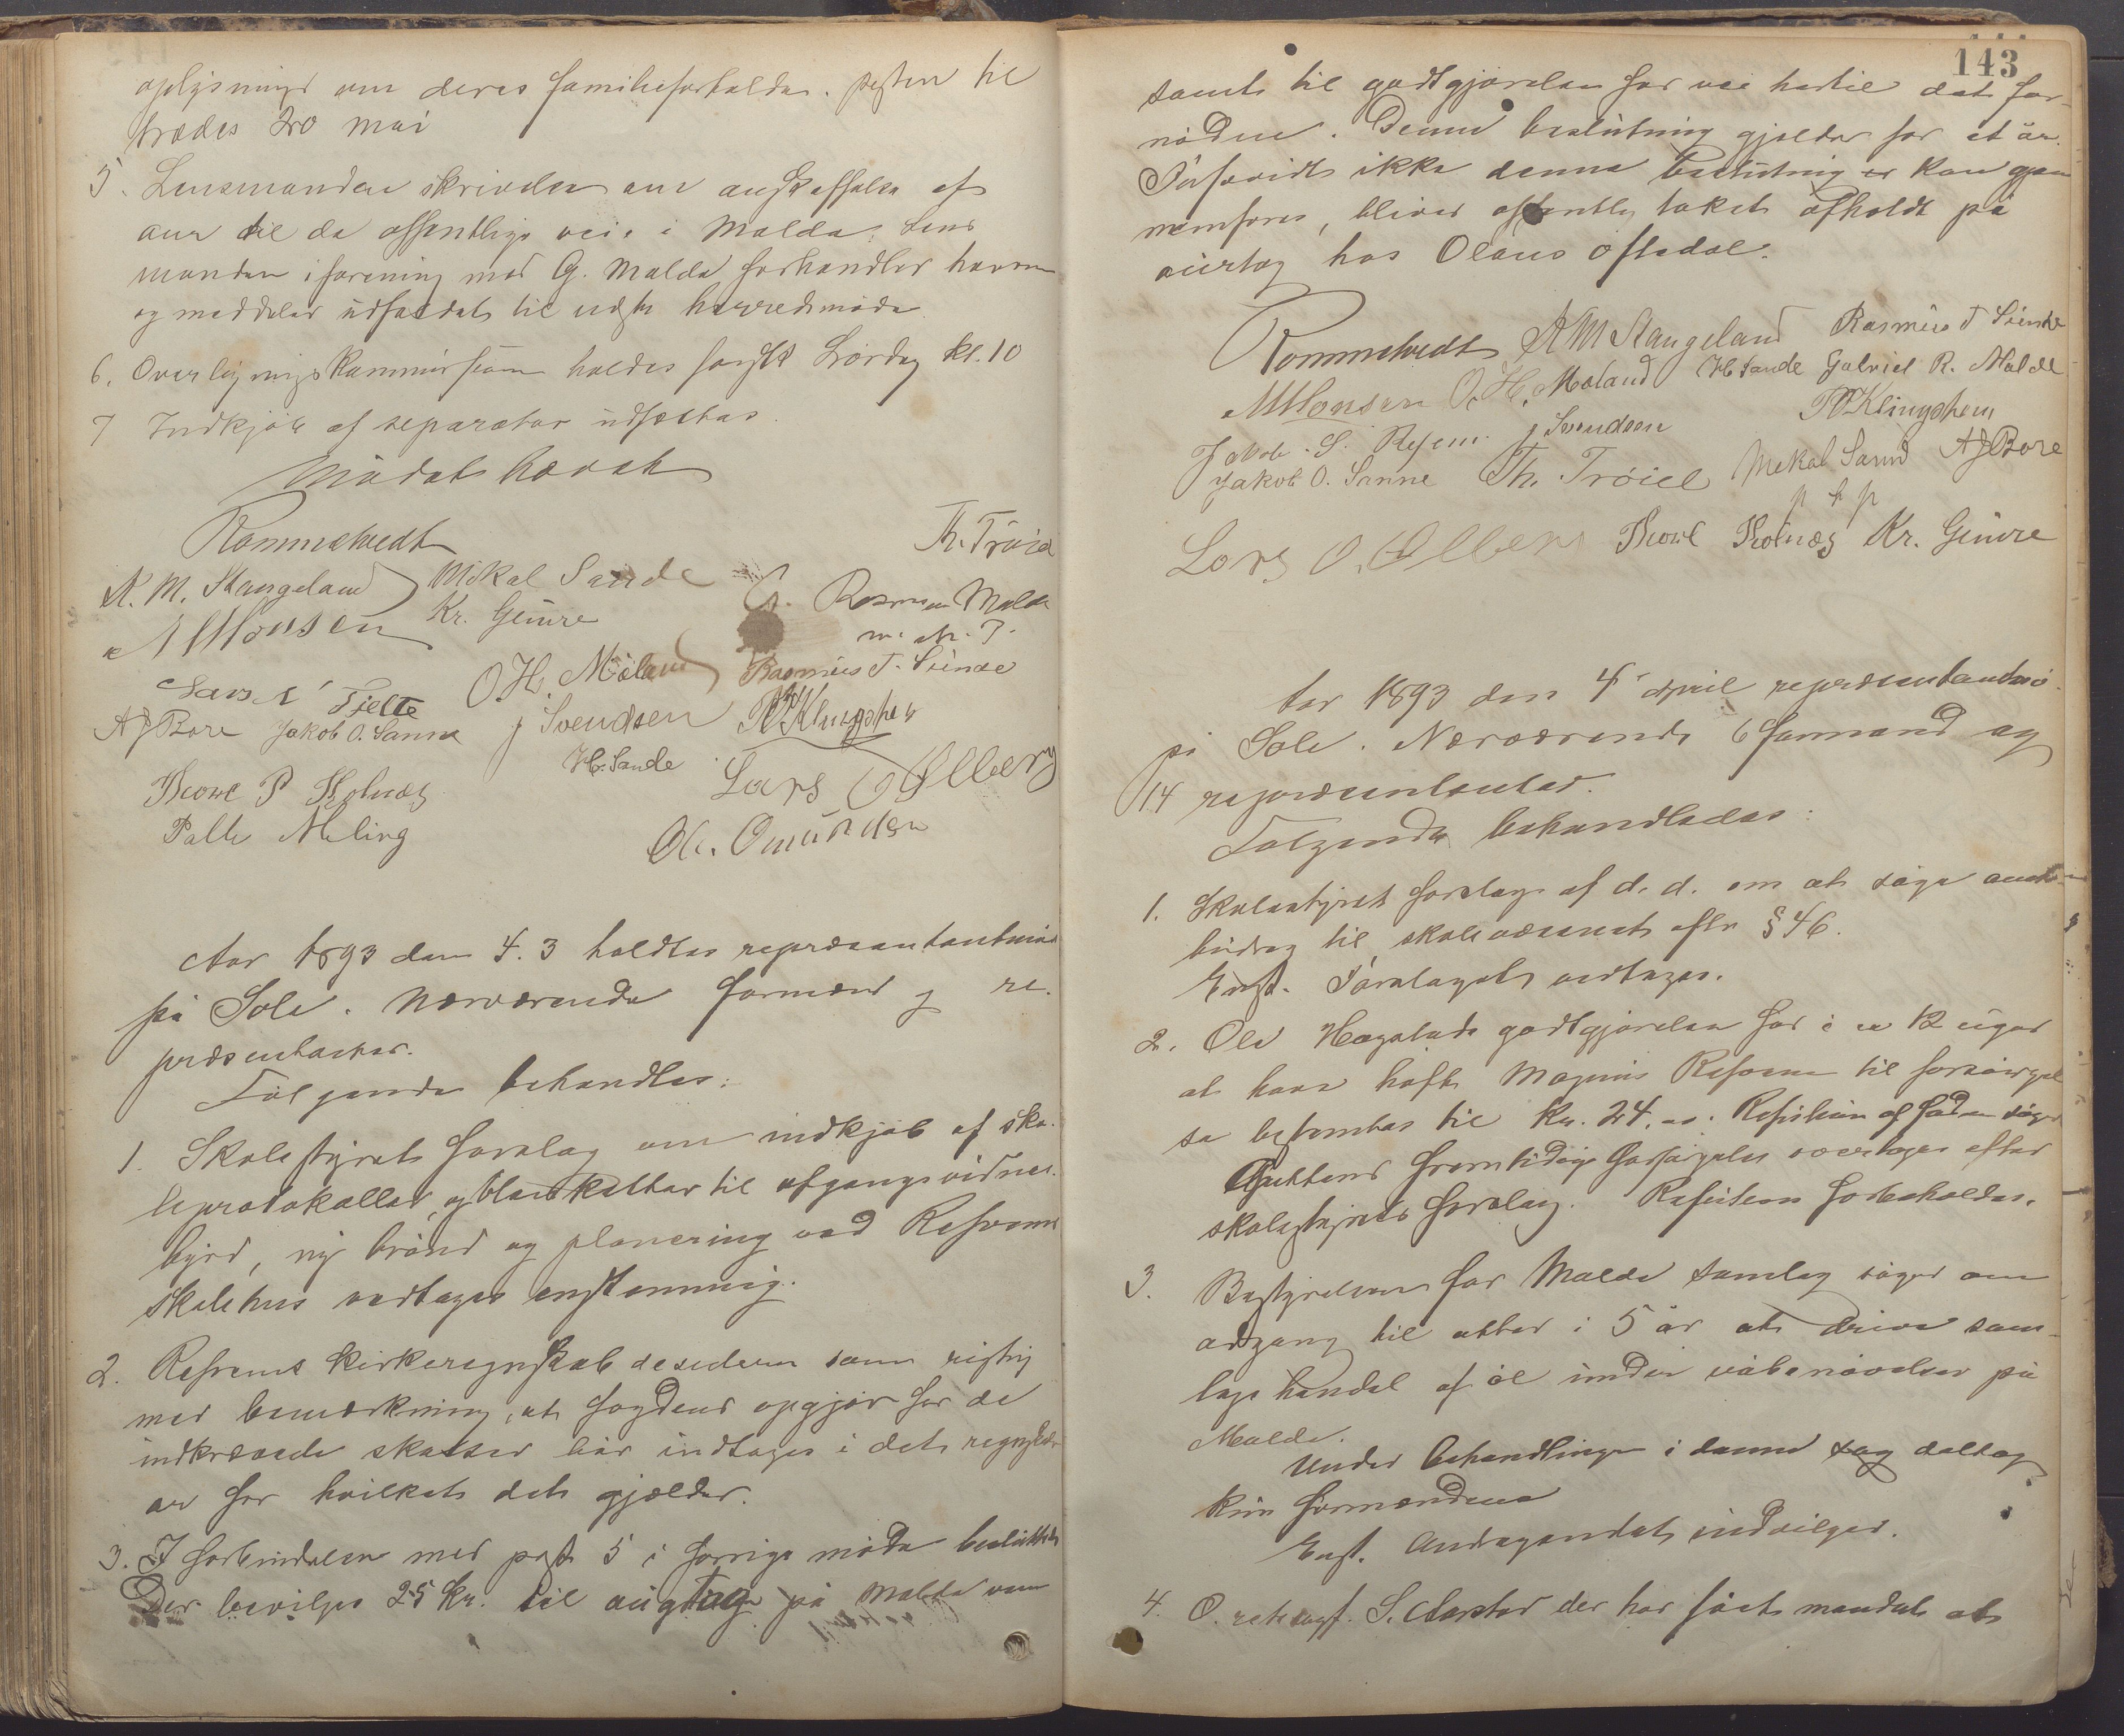 oplysninger om deres familieforholde. posten til
trædes 2 mai
5. Lensmanden skrivelse om anskaffelse af
aur til de offentlige veie i Malde. Lens
manden i forening med G. Malde forhandler herom
og meddeler udfaldet til næste herredsmøde
6. Overligningskommissionen holdes først Lørdag kl. 10
7 Indkjøb af separator udsættes.
Mødet hævet
Rommetvedt
Th. Trøiel
A. M. Stangeland Mikal Sande Rasmus Malde
A Monsen Kr. Gimre m. p.
Lars Tjelte O. H. Meland Rasmus T. Sunde
A J Bore Jakob O. Sanne J Svendsen Klingsheim
H. Sande Lars O Ølberg
Thore P Kolnæs
Palle Meling Ole Omundsen
Aar 1893 den 4.3 holdtes repræsentantmøde
på Sole. Nærværende formænd og re-
præsentanter.
Følgende behandles:
1. Skolestyrets forslag om indkjøb af sko-
leprotokoller og blanketter til afgangsvidnes-
byrd, ny brønd og planering ved Refsnes
skolehus vedtages enstemmig.
2. Refsnes kirkeregnskab desideres som rigtig
med bemærkning, at fogdens opgjør for de
indkrævede skatter bør indtages i det regnskabs
aar for hvilket det gjælder.
3. I forbindelse med post 5 i forrige møde besluttedes
Der bevilges 25 kr. til aurtag på Malde vem
143
samt til godtgjørelse for vei hertil det for-
nødne. Denne beslutning gjælder for et år.
Såfrevidt ikke denne beslutning er kan gjen
nemføres, bliver offentlig taket afholdt på
aurtag hos Olaus Oftedal.
Rommetvedt A M Stangeland Rasmus T Sunde
A Monsen O. H. Meland H Sande Gabriel R. Malde
Jakob S. Refsn J Svendsen Klingsheim
Jakob O. Sanne Th. Trøiel Mikal Sand A J Bore
p f p
Lars O. Ølberg Thore Kolnæs Kr. Gimre
Aar 1893 den 4 april repræsentantmø
på Sole. Nærværende 6 formænd og
14 repræsentanter.
Følgende behandledes:
1. Skolestyrets forslag af d. d. om at søge amts
bidrag til skolevæsenet efter § 46.
Enst. Forslaget vedtages.
2. Ole Hogstads godtgjørelse for i 12 uger
at have havt Magnus Refsnes til forsørgel
se bestemtes til Kr. 24. Refusion af faderen søges
Guttens fremtidige forsørgelse overtages efter
skolestyrets forslag. Refusion forbeholdes.
3. Bestyrelsen for Malde samlag søger om
adgang til atter i 5 år at drive sam-
lags handel af øl under udbenævelse på
Malde.
Under behandlingen i denne sag deltog
kun formændene
Enst. Andragendet indvilges.
4. O. retssagf. S. Aarstad der har fået mandat at